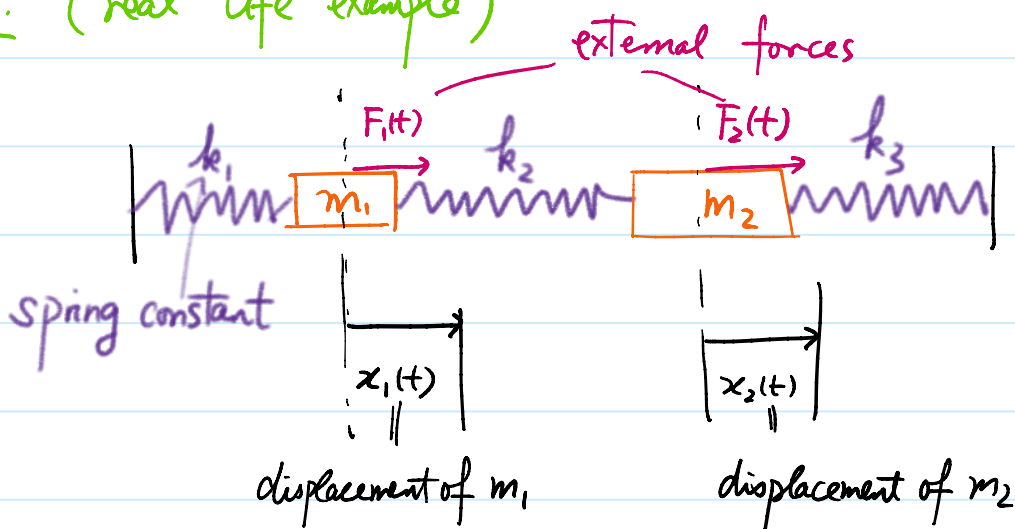 (real life example)
external forces
F₁(t) F₂(t)
k₁ k₂ k₃
m₁ m₂
spring constant
x₁(t) x₂(t)
|| ||
displacement of m₁ displacement of m₂